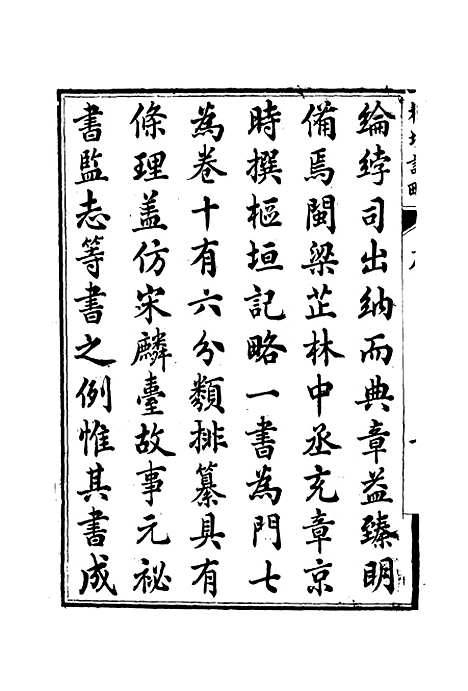 樞垣記略
綸綍司出納而典章益臻明
備焉閩梁芷林中丞充章京
時撰樞垣記略一書為門七
為卷十有六分類排纂具有
條理蓋仿宋麟臺故事元祕
書監志等書之例惟其書成